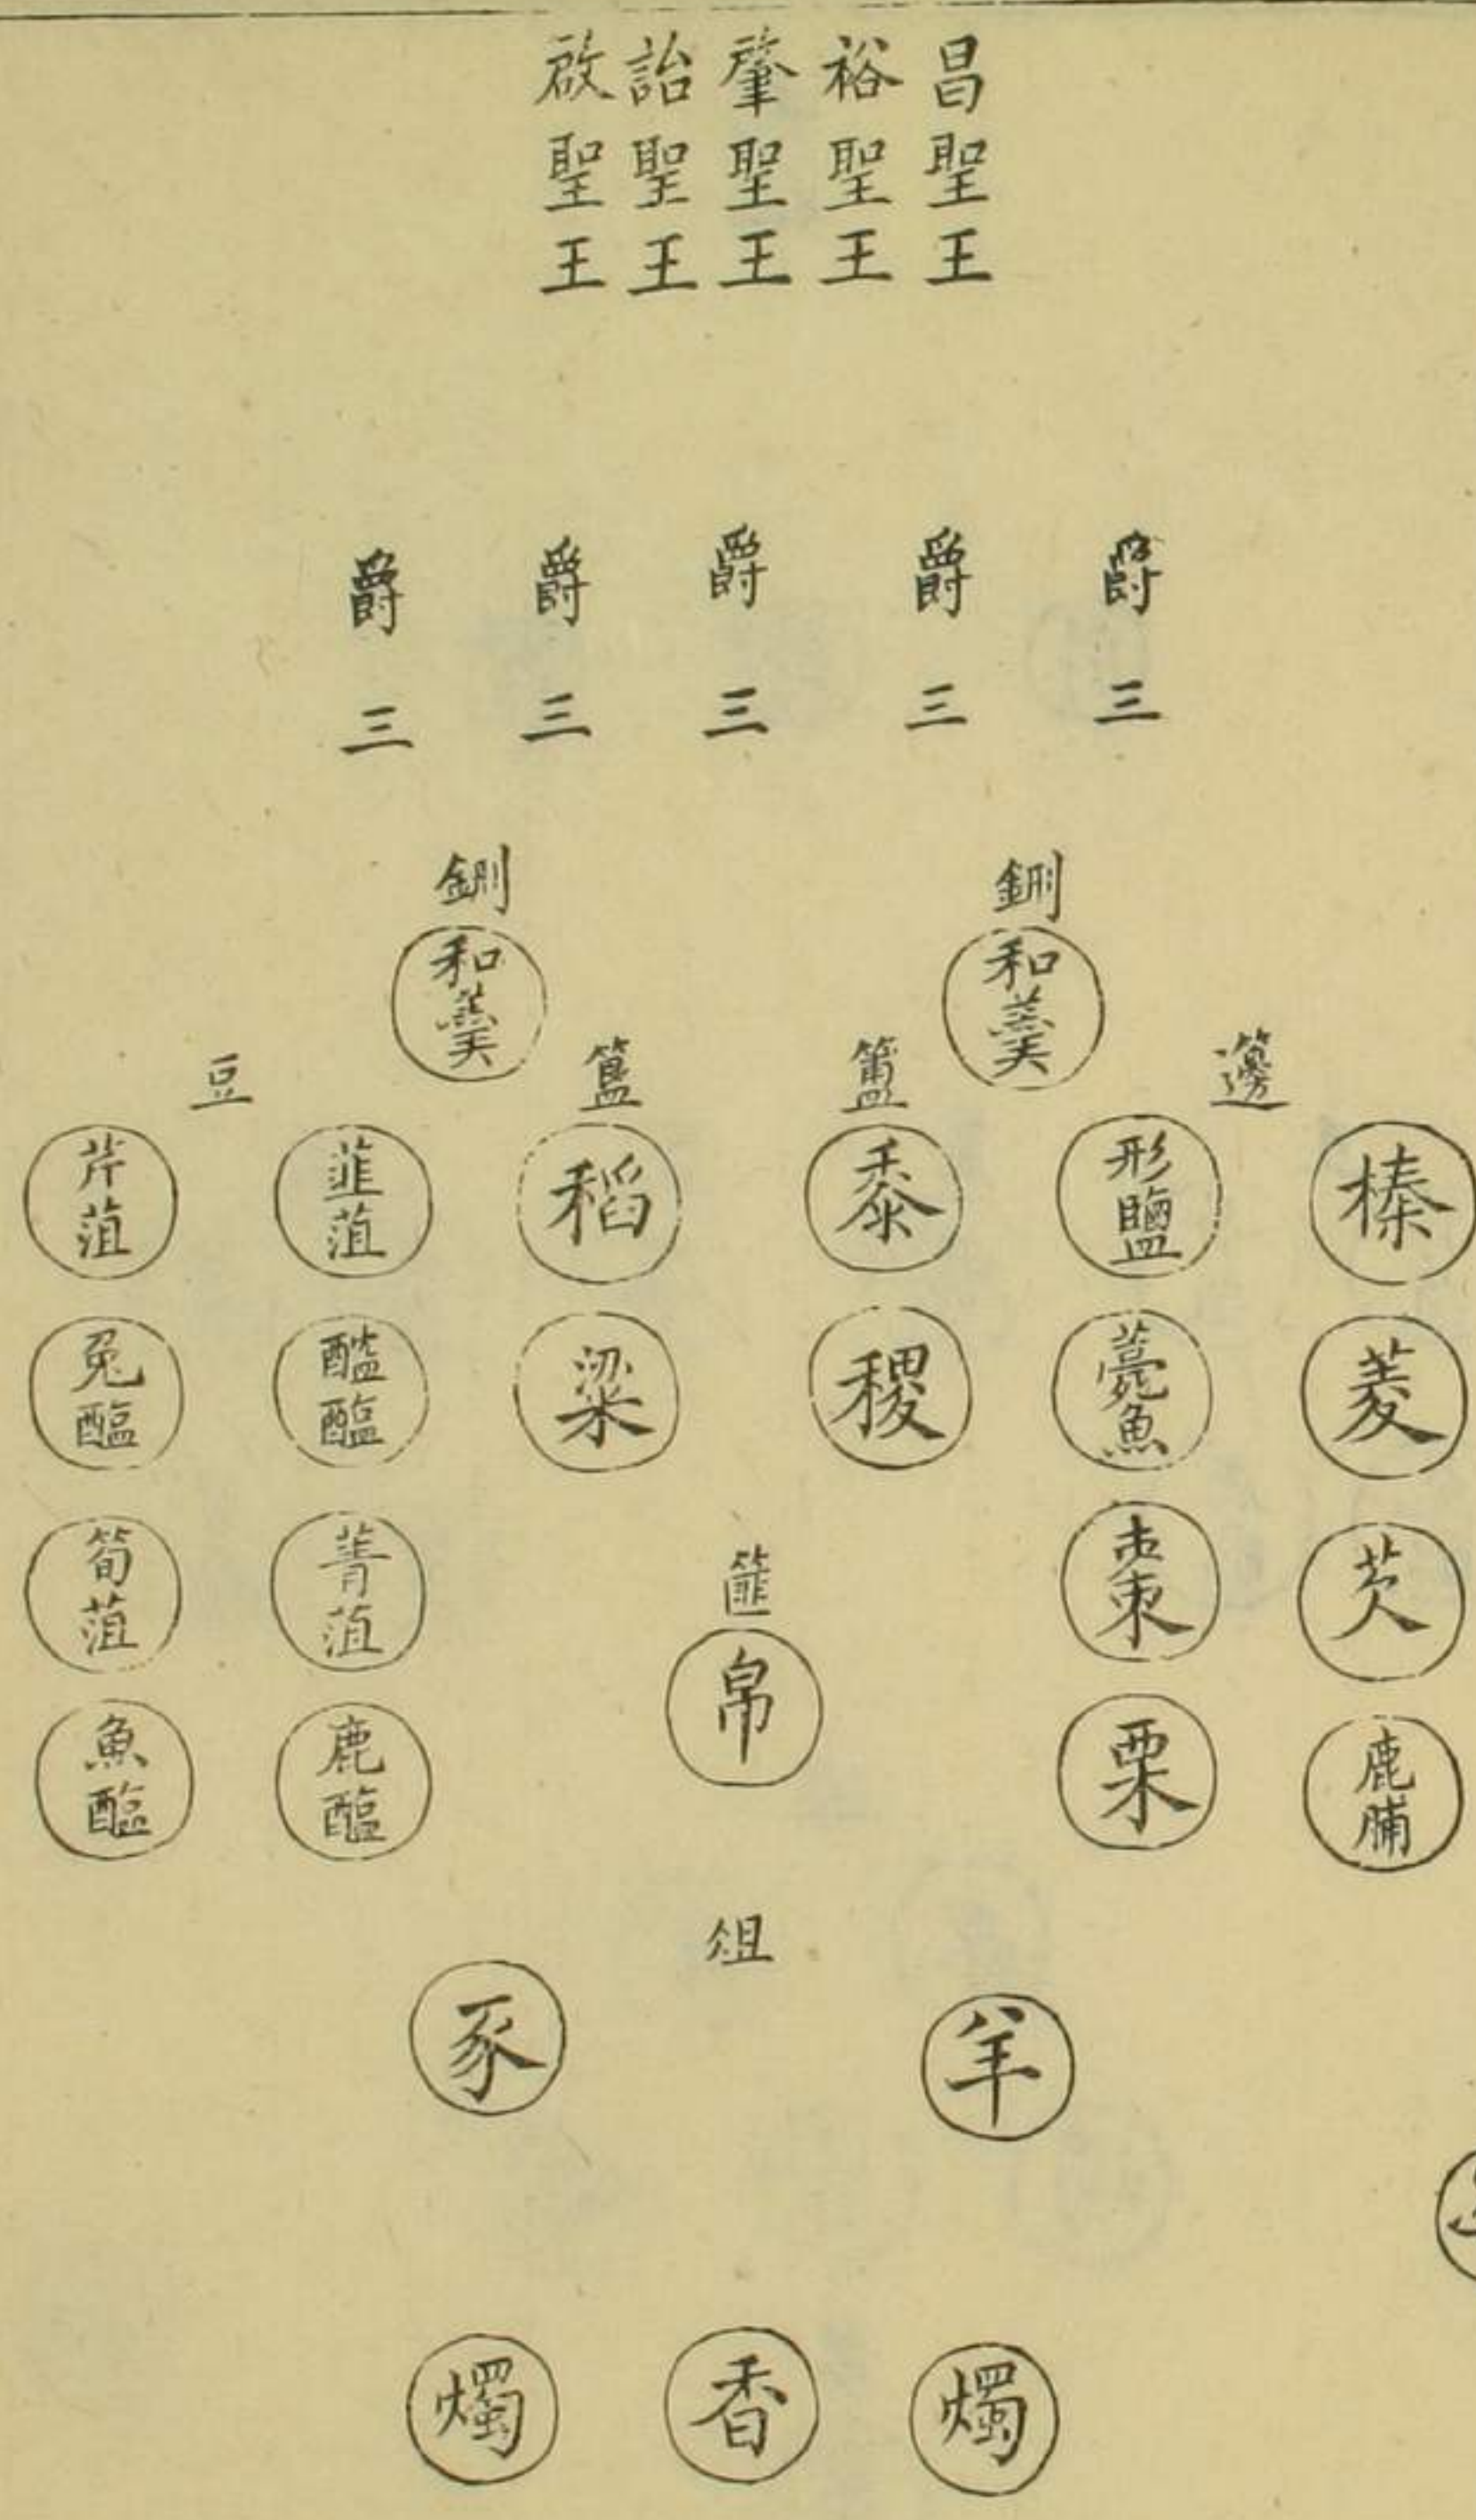 昌聖王
裕聖王
肇聖王
詒聖王
啟聖王
爵三
爵三
爵三
爵三
爵三
鉶
和羹
鉶
和羹
籩
榛
菱
芡
鹿脯
形鹽
薧魚
棗
栗
簠
黍
稷
簋
稻
粱
豆
韮菹
醓醢
菁菹
鹿醢
芹菹
兔醢
筍菹
魚醢
篚
帛
俎
羊
豕
燭
香
燭